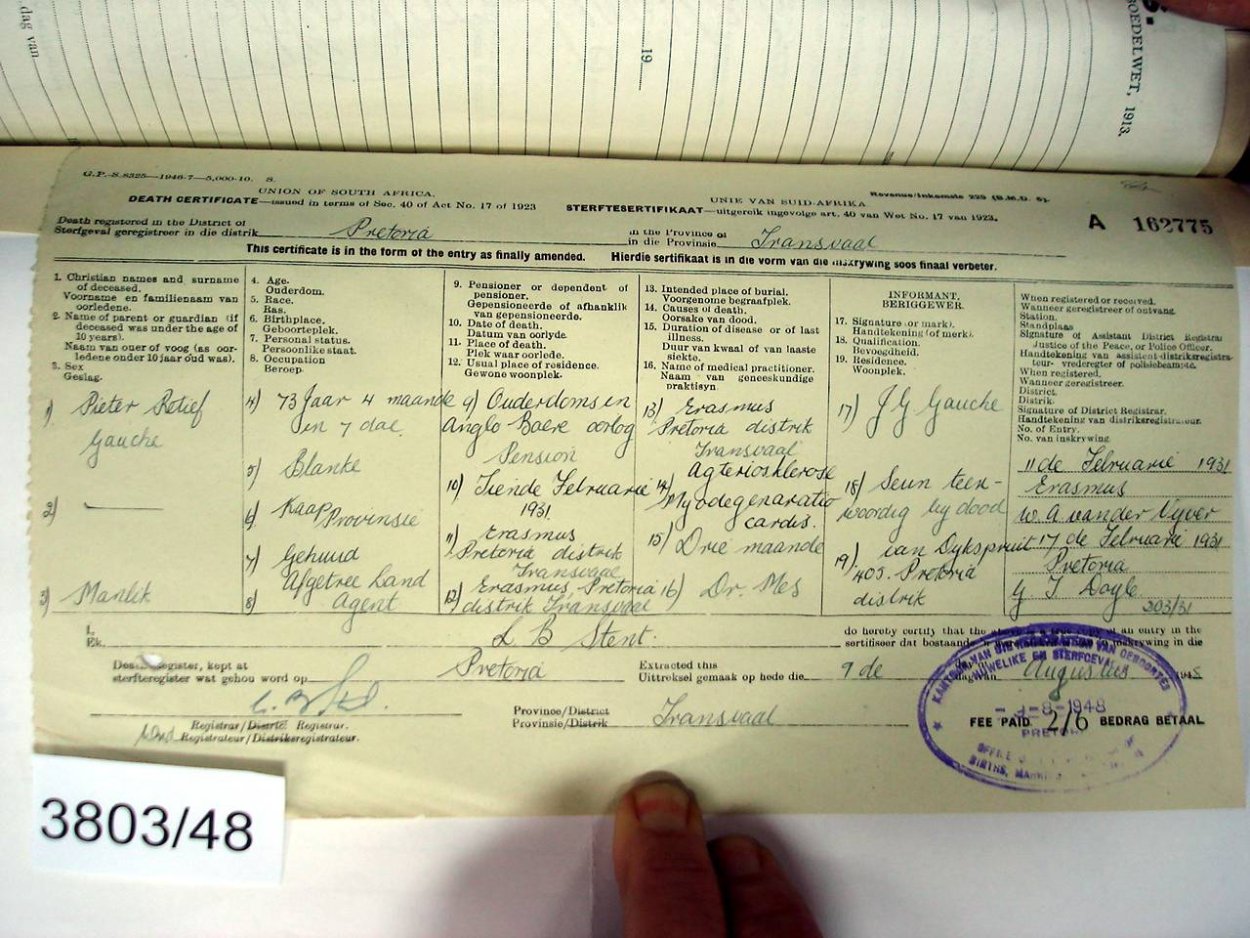 dag van
19
BOEDELWET, 1913.
G.P.-S.8325—1946-7—5,000-10. S.
UNION OF SOUTH AFRICA.
DEATH CERTIFICATE—issued in terms of Sec. 40 of Act No. 17 of 1923
Revenue/Inkomste 229 (B.M.D. 6).
UNIE VAN SUID-AFRIKA
STERFTESERTIFIKAAT—uitgereik ingevolge art. 40 van Wet No. 17 van 1923.
A 162775
Death registered in the District of
Sterfgeval geregistreer in die distrik Pretoria
in the Province of
in die Provinsie Transvaal
This certificate is in the form of the entry as finally amended. Hierdie sertifikaat is in die vorm van die inskrywing soos finaal verbeter.
1. Christian names and surname
of deceased.
Voorname en familienaam van
oorledene.
2. Name of parent or guardian (if
deceased was under the age of
10 years).
Naam van ouer of voog (as oor-
ledene onder 10 jaar oud was).
3. Sex
Geslag.
1) Pieter Retief
Gauche
2) —
3) Manlik
4. Age.
Ouderdom.
5. Race.
Ras.
6. Birthplace.
Geboorteplek.
7. Personal status.
Persoonlike staat.
8. Occupation
Beroep.
4) 73 Jaar 4 maande
en 7 dae.
5) Blanke
6) Kaap Provinsie
7) Gehuud
Afgetree Land
8) Agent
9. Pensioner or dependent of
pensioner.
Gepensioneerde of afhanklik
van gepensioneerde.
10. Date of death.
Datum van oorlyde.
11. Place of death.
Plek waar oorlede.
12. Usual place of residence.
Gewone woonplek.
9) Ouderdoms en
Anglo Boere oorlog
Pension
10) Tiende Februarie
1931.
11) Erasmus
Pretoria distrik
Transvaal
12) Erasmus, Pretoria
distrik Transvaal
13. Intended place of burial.
Voorgenome begraafplek.
14. Causes of death.
Oorsake van dood.
15. Duration of disease or of last
illness.
Duur van kwaal of van laaste
siekte.
16. Name of medical practitioner.
Naam van geneeskundige
praktisyn
13) Erasmus
Pretoria distrik
Transvaal
14) Agterioshlerose
Myodegenaratio
cardis.
15) Drie maande
16) Dr. Mes
INFORMANT.
BERIGGEWER.
17. Signature or mark).
Handtekening (of merk).
18. Qualification.
Bevoegdheid.
19. Residence.
Woonplek.
17) J G Gauche
18) Seun teen-
woordig by dood
19) van Dykspruit
405. Pretoria
distrik
When registered or received.
Wanneer geregistreer of ontvang.
Station.
Standplaas
Signature of Assistant District Registrar
Justice of the Peace, or Police Officer.
Handtekening van assistent-distriksregistra-
teur- vrederegter of polisiebeampte.
When registered.
Wanneer geregistreer.
District.
Distrik.
Signature of District Registrar.
Handtekening van distriksregistrateur.
No. of Entry.
No. van inskrywing
11 de Februarie 1931
Erasmus
W. A van der Vijver
17 de Februarie 1931
Pretoria
G T Doyle
203/31
I,
Ek, L B Stent.
do hereby certify that the above is a true copy of an entry in the
sertifiseer dat bostaande inskrywing in die
Death Register, kept at
sterfteregister wat gehou word op Pretoria
Extracted this
Uittreksel gemaak op hede die 9 de dag van Augustus 1948
Registrar/District Registrar.
Registrateur/Distriksregistrateur.
Province/District
Provinsie/Distrik Transvaal
KANTOOR VAN DIE REGISTRATEUR VAN GEBOORTES
HUWELIKE EN STERFGEVALLE
-8-1948
PRETORIA
FEE PAID 2/6 BEDRAG BETAAL
3803/48